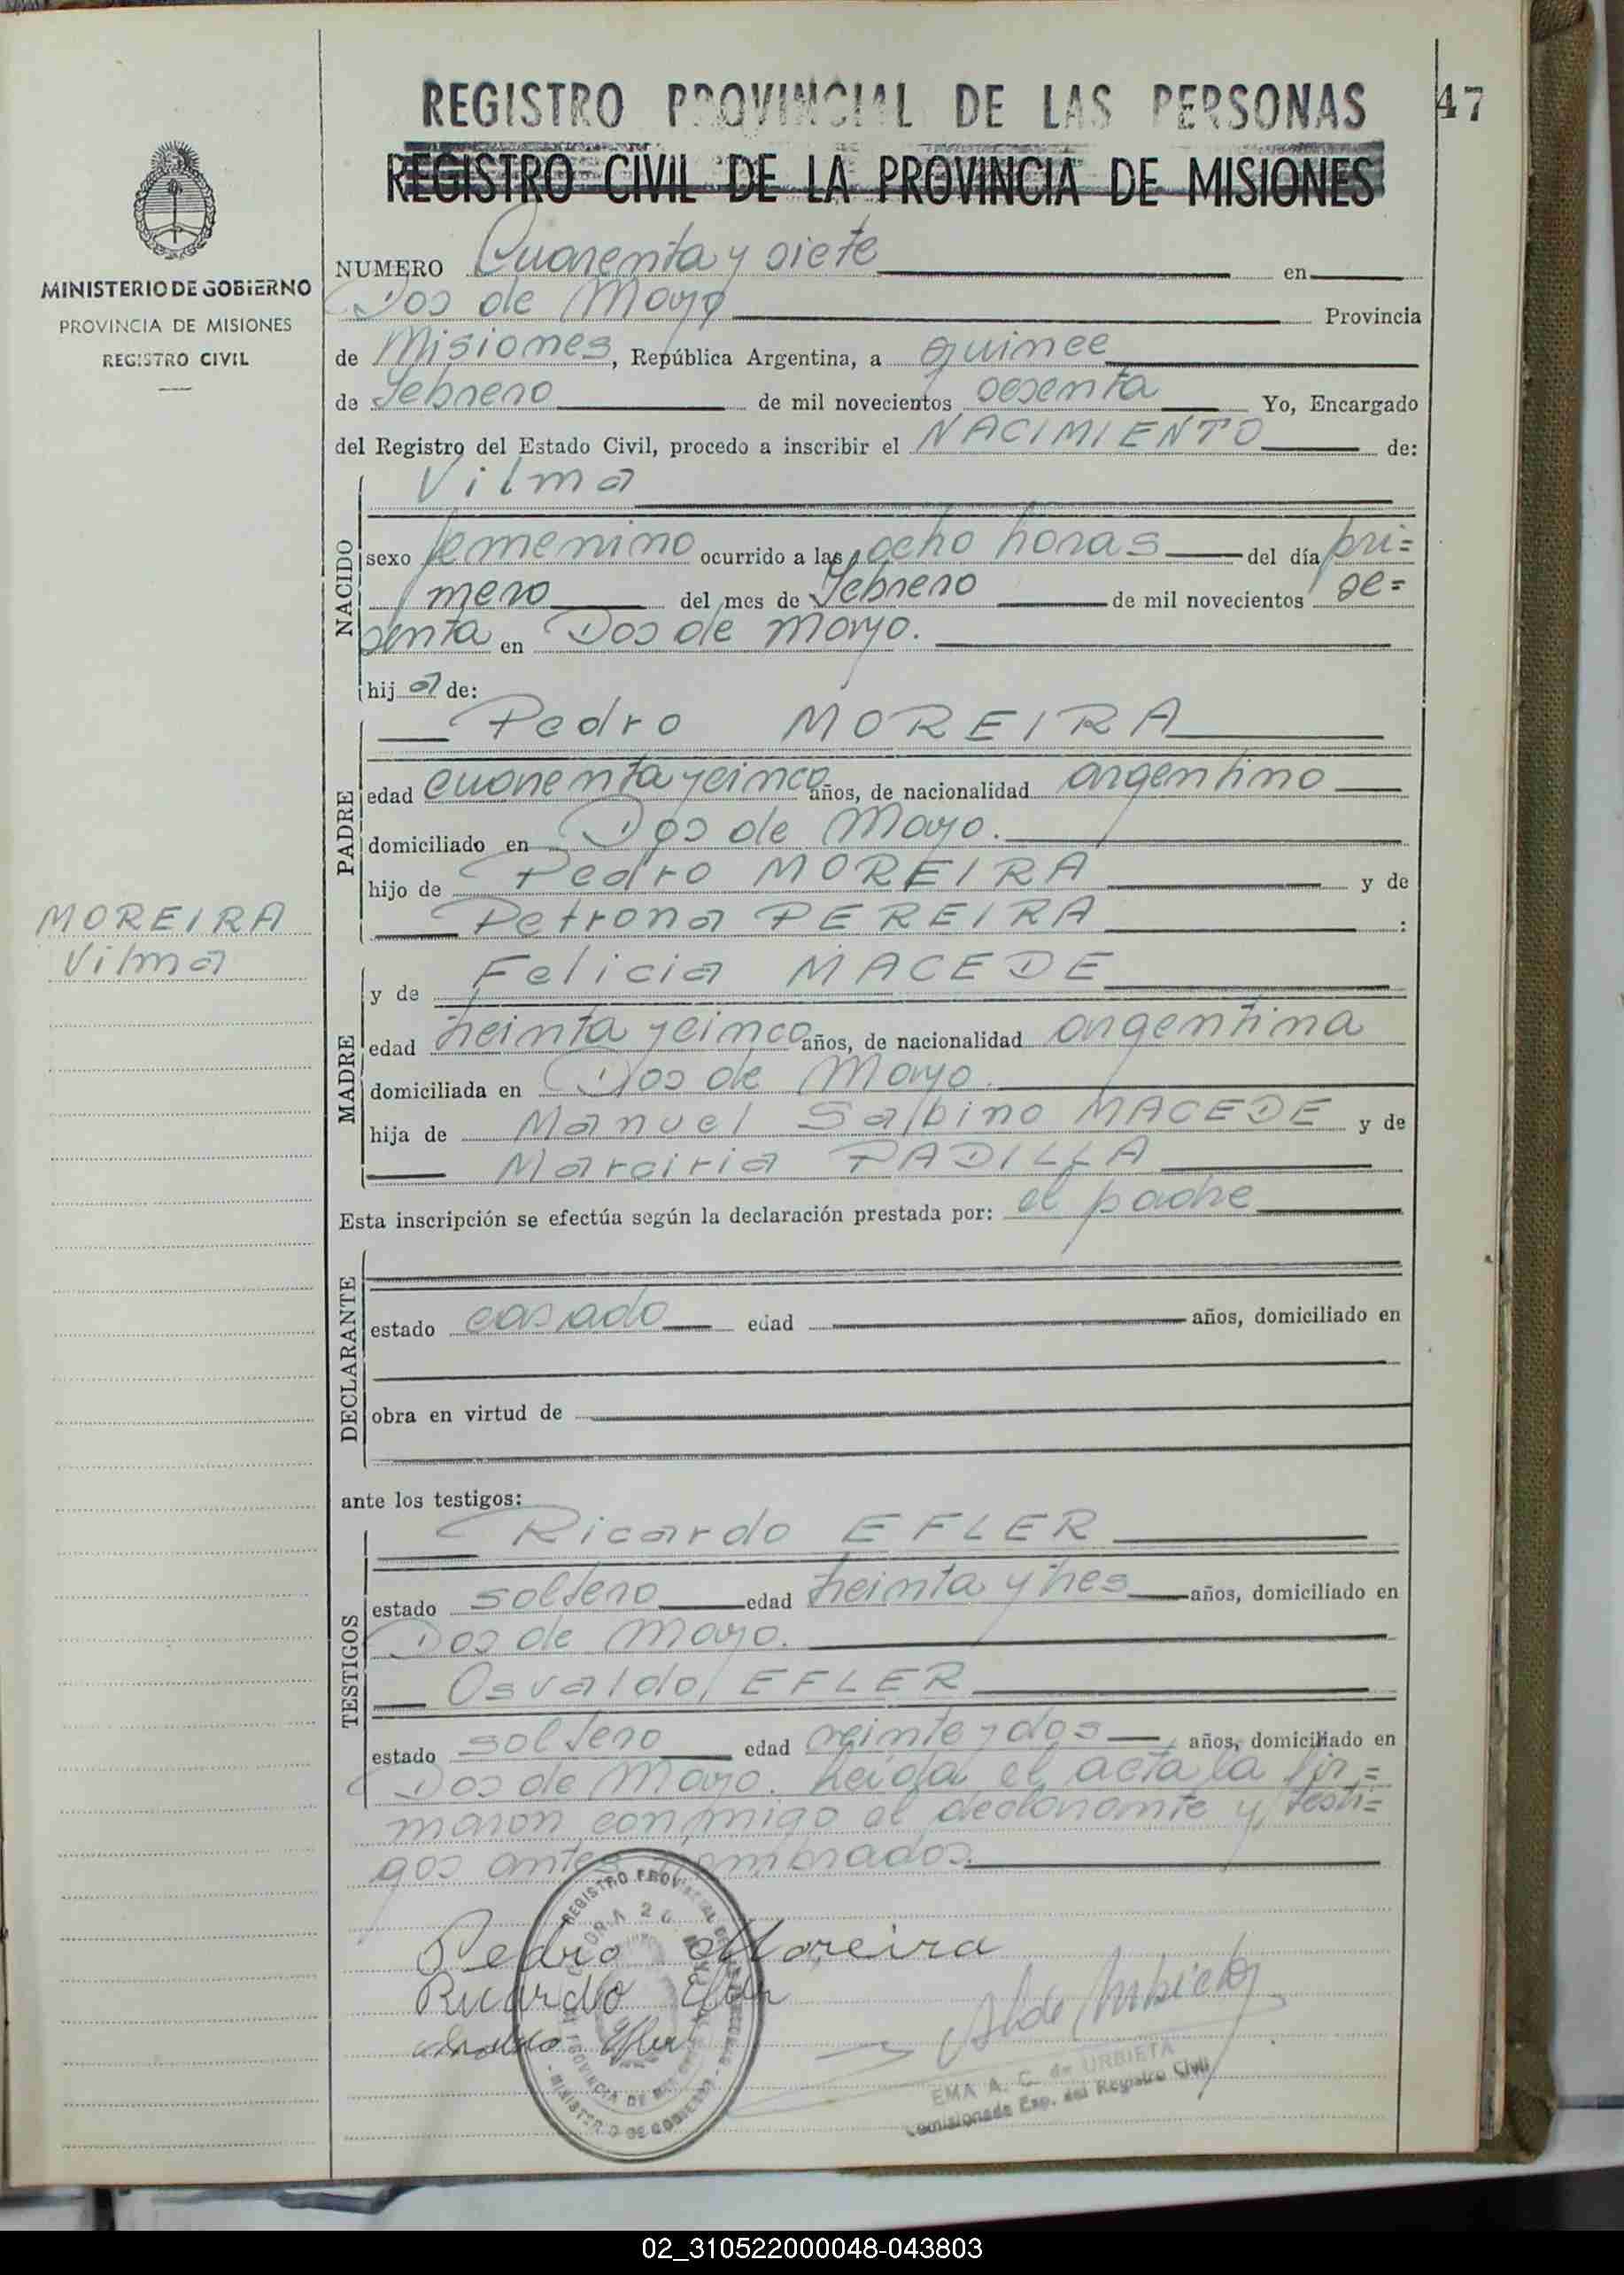 REGISTRO PROVINCIAL DE LAS PERSONAS
47
REGISTRO CIVIL DE LA PROVINCIA DE MISIONES
MINISTERIO DE GOBIERNO
PROVINCIA DE MISIONES
REGISTRO CIVIL
NUMERO Cuarenta y siete en
Dos de Mayo Provincia
de Misiones, República Argentina, a quince
de Febrero de mil novecientos sesenta Yo, Encargado
del Registro del Estado Civil, procedo a inscribir el NACIMIENTO de:
NACIDO
Vilma
sexo femenino ocurrido a las ocho horas del día pri=
mero del mes de Febrero de mil novecientos se=
senta en Dos de Mayo.
hij a de:
PADRE
Pedro MOREIRA
edad cuarenta y cinco años, de nacionalidad argentino
domiciliado en Dos de Mayo.
hijo de Pedro MOREIRA y de
Petrona PEREIRA :
MOREIRA
Vilma
MADRE
y de Felicia MACEDE
edad treinta y cinco años, de nacionalidad argentina
domiciliada en Dos de Mayo.
hija de Manuel Salbino MACEDE y de
Marciria PADILLA
Esta inscripción se efectúa según la declaración prestada por: el padre
DECLARANTE
estado casado edad años, domiciliado en
obra en virtud de
ante los testigos:
TESTIGOS
Ricardo EFLER
estado soltero edad treinta y tres años, domiciliado en
Dos de Mayo.
Osvaldo EFLER
estado soltero edad veinte y dos años, domiciliado en
Dos de Mayo. Leida el acta la fir=
maron conmigo el declarante y testi=
gos antes nombrados.
REGISTRO PROVINCIAL DE LAS PERSONAS
PROVINCIA DE MISIONES
MINISTERIO DE GOBIERNO
Pedro Moreira
Ricardo Efler
Efler
EMA A. C. de URBIETA
Comisionada Esp. del Registro Civil
02_310522000048-043803